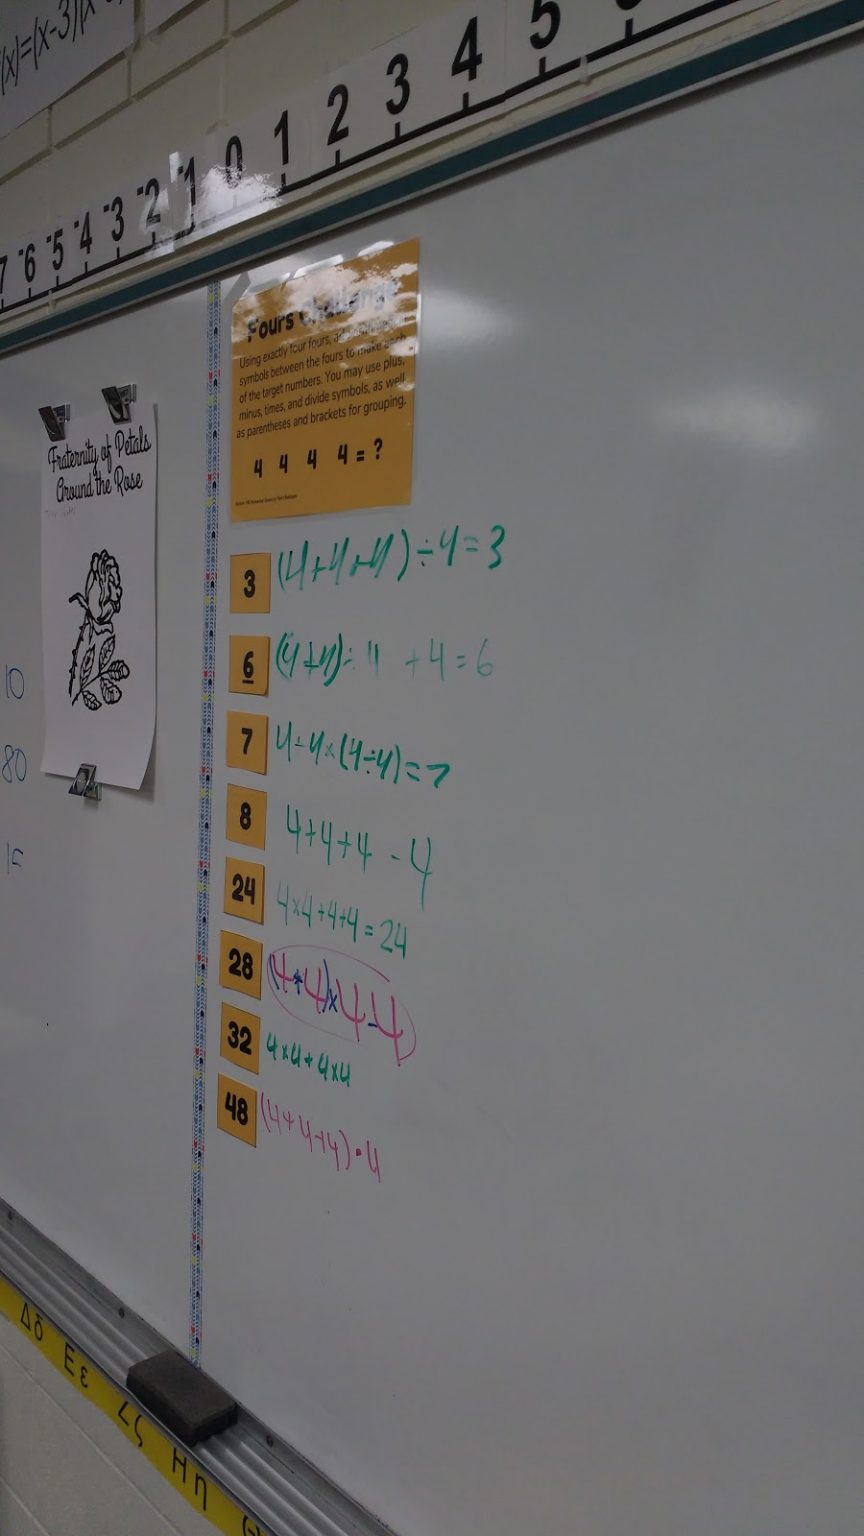 (x)=(x-3)(x
-7 -6 -5 -4 -3 -2 -1 0 1 2 3 4 5
Fours Challenge
Using exactly four fours,
symbols between the fours to make each
of the target numbers. You may use plus,
minus, times, and divide symbols, as well
as parentheses and brackets for grouping.
4 4 4 4 = ?
Fraternity of Petals
Around the Rose
10
80
3 (4+4+4)÷4=3
6 (4+4)÷4 +4=6
7 4-4×(4÷4)=7
8 4+4+4-4
24 4×4+4+4=24
28 (4+4)×4-4
32 4×4+4×4
48 (4+4+4)·4
Δδ Εε Ζζ Ηη